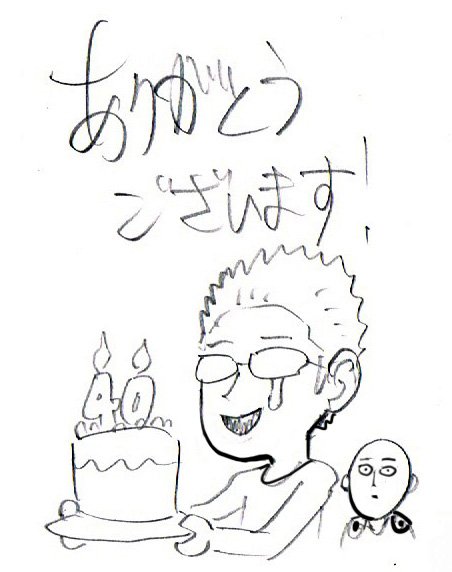 ありがとう
ございます!
40